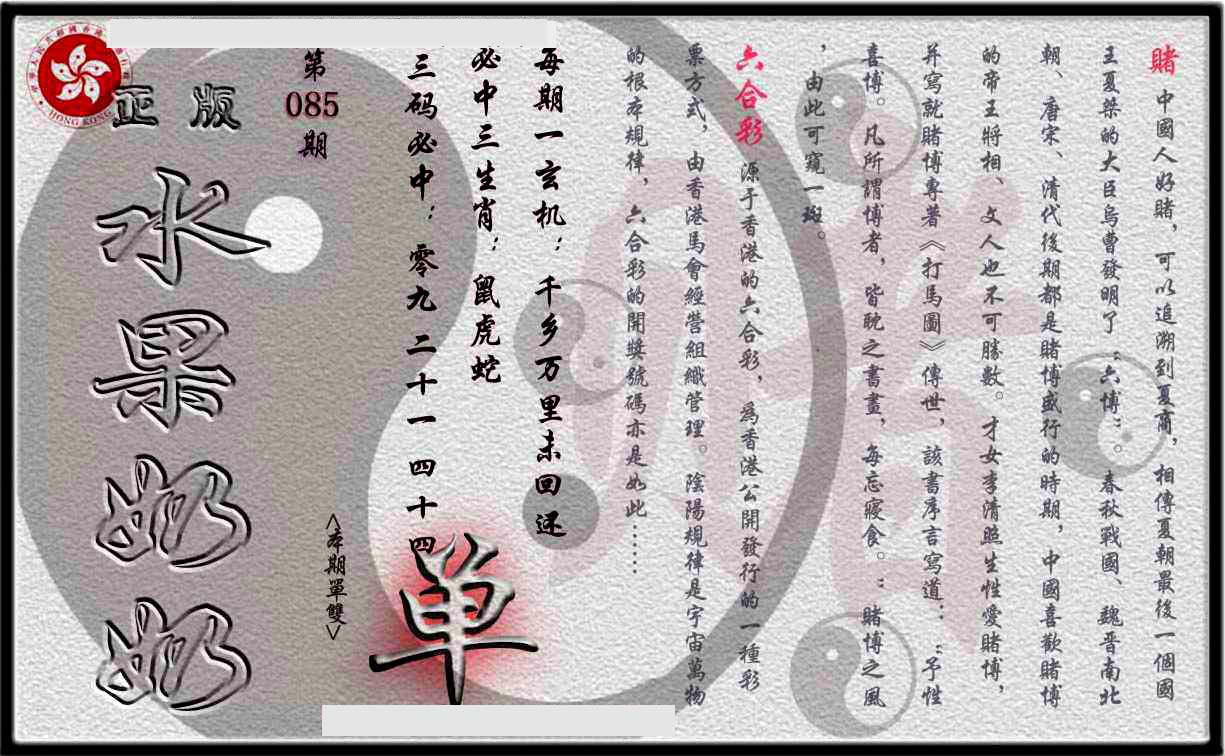 賭 中國人好賭，可以追溯到夏商，相傳夏朝最後一個國
王夏桀的大臣烏曹發明了“六博”。春秋戰國、魏晋南北
朝、唐宋、清代後期都是賭博盛行的時期，中國喜歡賭博
的帝王將相、文人也不可勝數。才女李清照生性愛賭博，
并寫就賭博專著《打馬圖》傳世，該書序言寫道：“予性
喜博。凡所謂博者，皆耽之書畫，每忘寢食。”賭博之風
，由此可窺一斑。
六合彩 源于香港的六合彩，為香港公開發行的一種彩
票方式，由香港馬會經營組織管理。陰陽規律是宇宙萬物
的根本規律，六合彩的開獎號碼亦是如此……
每期一玄机：千乡万里未回还
必中三生肖：鼠虎蛇
三码必中：零九 二十一 四十四
第
085
期
<本期單雙>
单
正版
水果奶奶
HONG KONG